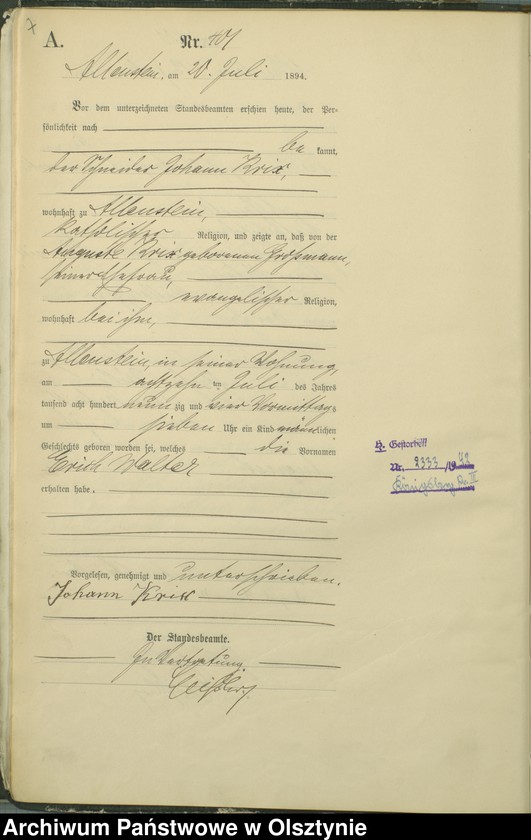 A.
Nr. 401
Allenstein, am 20. Juli 1894.
Vor dem unterzeichneten Standesbeamten erschien heute, der Per-
sönlichkeit nach
be kannt,
der Schneider Johann Krix,
wohnhaft zu Allenstein,
katholischer Religion, und zeigte an, daß von der
Auguste Krix gebornen Großmann,
seiner Ehefrau,
evangelischer Religion,
wohnhaft bei ihm,
zu Allenstein, in seiner Wohnung,
am achtzehnten Juli des Jahres
tausend acht hundert neunzig und vier Vormittags
um sieben Uhr ein Kind männlichen
Geschlechts geboren worden sei, welches die Vornamen
Erich Walter
erhalten habe.
Vorgelesen, genehmigt und unterschrieben.
Johann Krix
Der Standesbeamte.
In Vertretung.
H. Gestorben
Nr. 2333 /1942
Königsberg Pr. II
Archiwum Państwowe w Olsztynie